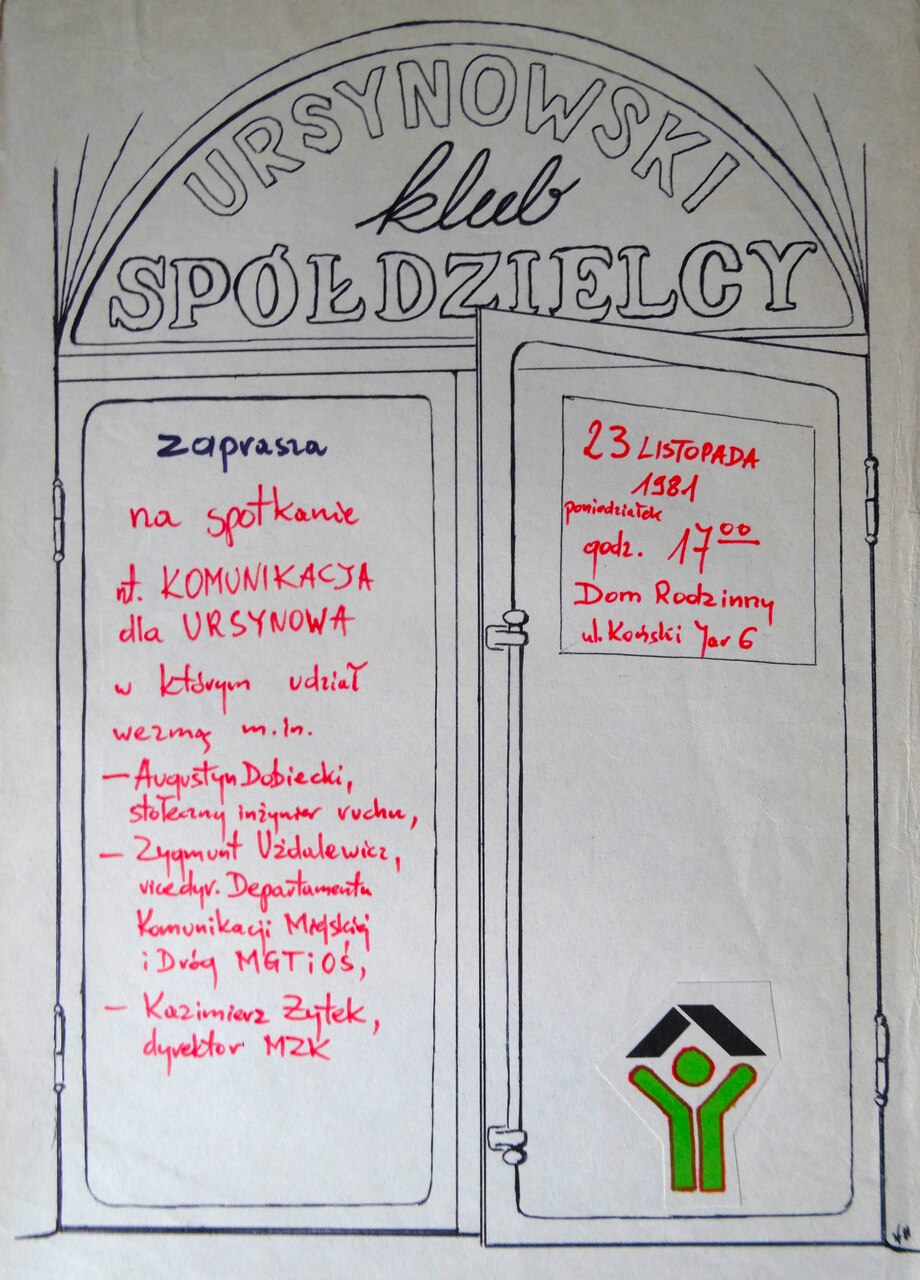 URSYNOWSKI
klub
SPÓŁDZIELCY
zaprasza
na spotkanie
nt. KOMUNIKACJA
dla URSYNOWA
w którym udział
wezmą m.in.
— Augustyn Dobiecki,
stołeczny inżynier ruchu,
— Zygmunt Użdalewicz,
vicedyr. Departamentu
Komunikacji Miejskiej
i Dróg MGTiOŚ,
— Kazimierz Żytek,
dyrektor MZK
23 LISTOPADA
1981
poniedziałek
godz. 17 00
Dom Rodzinny
ul. Koński Jar 6